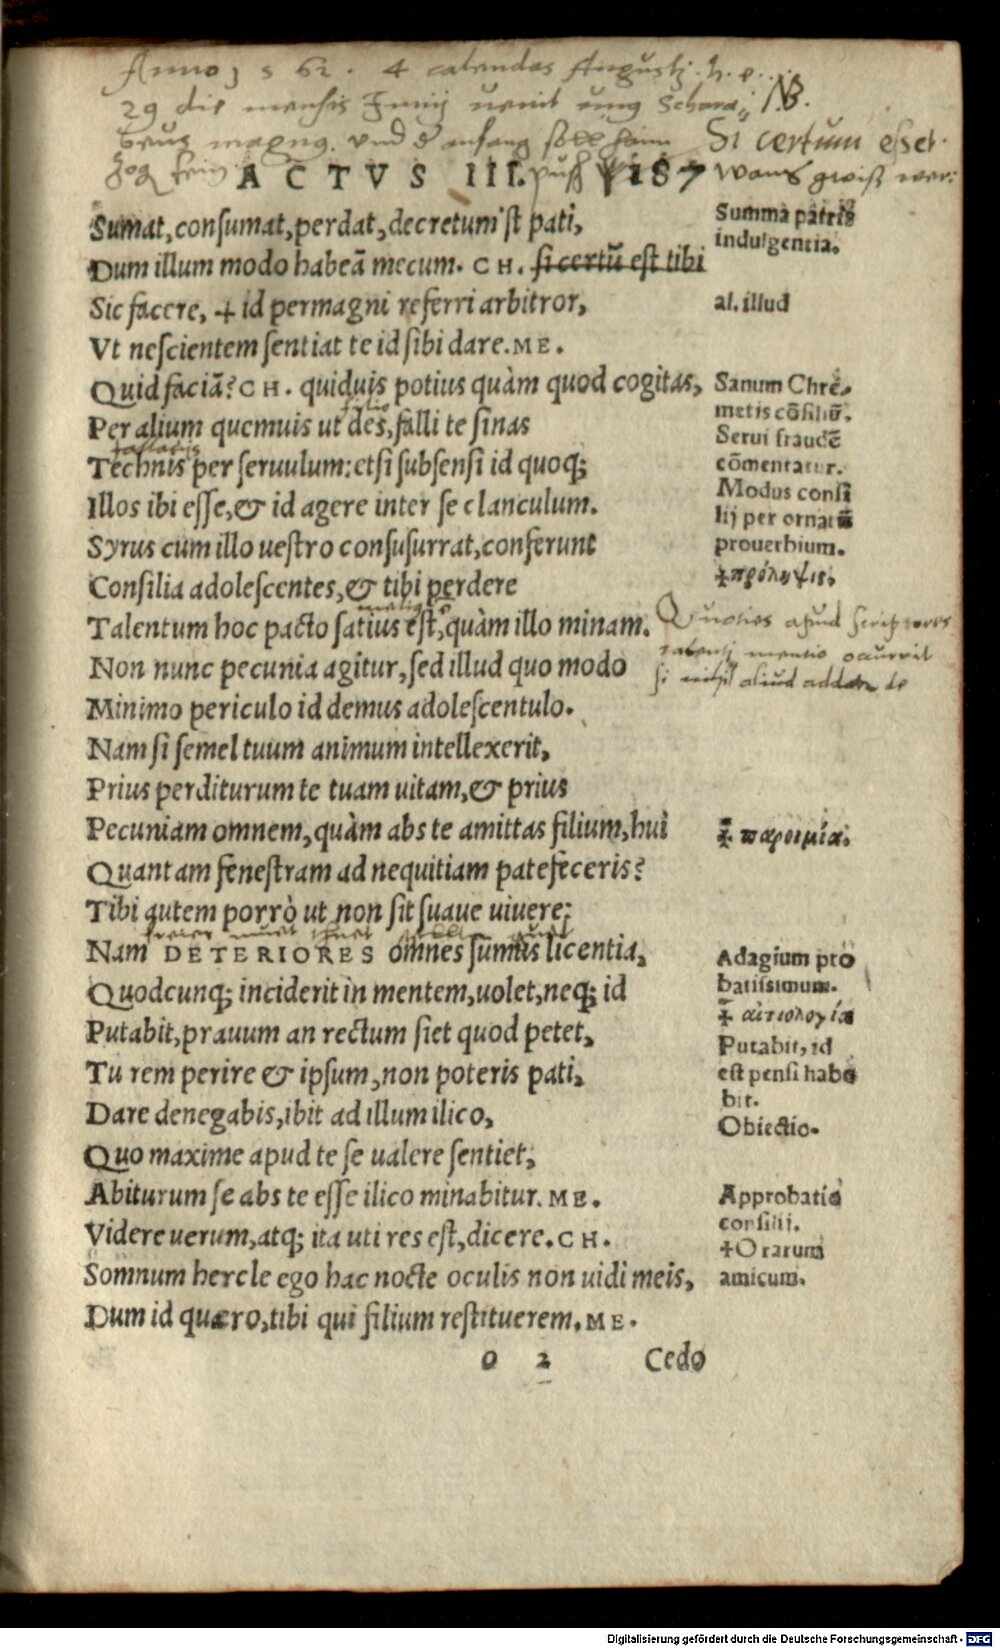 Anno 1562. 4 calendas Augusti. h. e.
29 die mensis Junij uenit Schara
beus magnus. und anfang soll NB.
Si certum esset.
ACTVS III. 187
Sumat, consumat, perdat, decretum'st pati,
Summa patris
indulgentia.
Dum illum modo habeā mecum. CH. si certū est tibi
Sic facere, + id permagni referri arbitror,
al. illud
Vt nescientem sentiat te id sibi dare. ME.
Quid faciā? CH. quiduis potius quàm quod cogitas,
Sanum Chre-
metis cōsiliū.
Per alium quemuis ut des, falli te sinas
Serui fraudē
Technis per seruulum: etsi subsensi id quoq;
cōmentatur.
Illos ibi esse, & id agere inter se clanculum.
Modus consi
lij per ornatū
Syrus cum illo uestro consusurrat, conferunt
prouerbium.
Consilia adolescentes, & tibi perdere
+πρόληψις.
Talentum hoc pacto satius est, quàm illo minam.
Quoties apud scriptores
talenti mentio occurrit
si nihil aliud addatur de
Non nunc pecunia agitur, sed illud quo modo
Minimo periculo id demus adolescentulo.
Nam si semel tuum animum intellexerit,
Prius perditurum te tuam uitam, & prius
Pecuniam omnem, quàm abs te amittas filium, hui
‡ παροιμία.
Quantam fenestram ad nequitiam patefeceris?
Tibi autem porrò ut non sit suaue uiuere;
Nam DETERIORES omnes sumus licentia,
Adagium pro
batissimum.
Quodcunq; inciderit in mentem, uolet, neq; id
‡ αἰτιολογία
Putabit, prauum an rectum siet quod petet,
Putabit, id
est pensi habe
bit.
Tu rem perire & ipsum, non poteris pati,
Dare denegabis, ibit ad illum ilico,
Obiectio.
Quo maxime apud te se ualere sentiet;
Abiturum se abs te esse ilico minabitur. ME.
Approbatio
consilij.
Videre uerum, atq; ita uti res est, dicere. CH.
+Orarum
amicum.
Somnum hercle ego hac nocte oculis non uidi meis,
Dum id quæro, tibi qui filium restituerem. ME.
o 2 Cedo
Digitalisierung gefördert durch die Deutsche Forschungsgemeinschaft - DFG